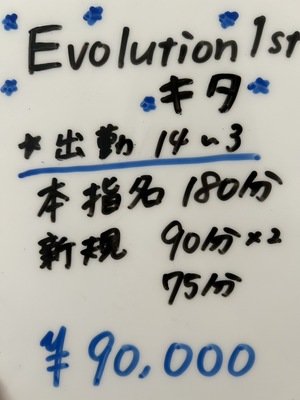 Evolution 1st
キタ
*出勤 14〜3
本指名 180分
新規 90分×2
75分
¥90,000